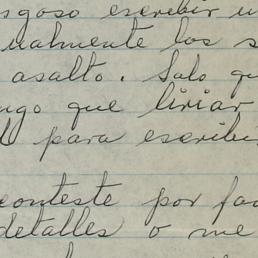 sgoso escribir u
ualmente los s
asalto. Solo qu
ngo que liriar
para escribi
conteste por fa
detalles o me